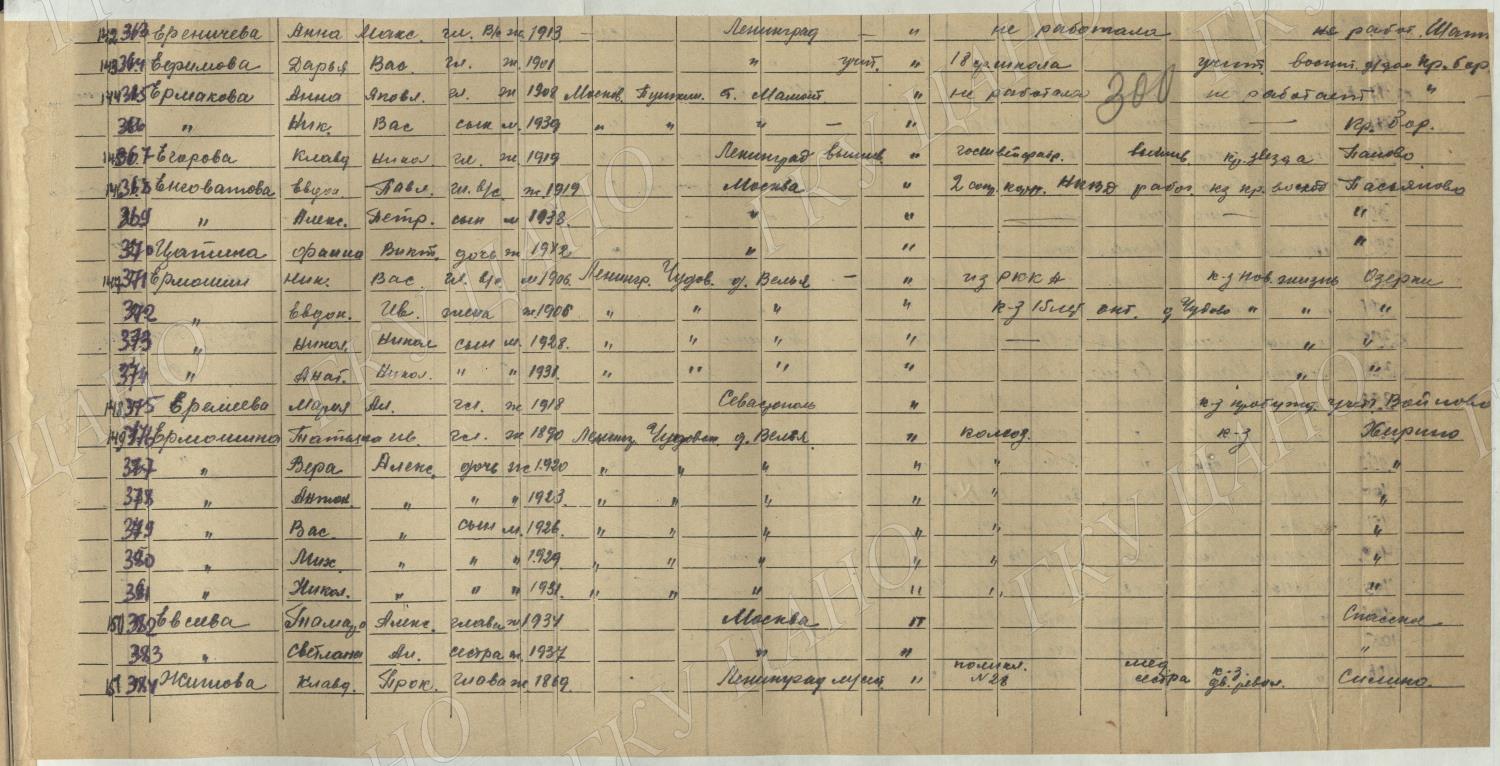 142 363 Ереничева Анна Макс. гл. в/с ж. 1913 — Ленинград — " не работала не работ.
143 364 Ефимова Дарья Вас. гл. ж. 1901 " учит. " 18 школа учит. воспит. Кр. бор.
144 365 Ермакова Анна Яковл. гл. ж 1908 Москов. Пушкин. с. Мамонт " не работала 300 не работает "
366 " Ник. Вас сын м. 1939 " " " — " — Кр. Бор.
367 Егорова Клавд Никол. гл. ж 1919 Ленинград вышив. " вышив кр. звезда Папово
368 Евдок. Павл. гл. в/с. ж. 1919 Москва " НКВД работ. кз кр. восход
369 " Алекс. Петр. сын м 1938. " " — — "
370 Цапина Фаина Викт. дочь ж 1942 " " "
371 Ермошин Ник. Вас. гл. в/с м 1906. Ленингр. Чудов. д. Велья — " из РККА к-з нов. жизнь Озерки
372 " Евдок. Ив. жена ж 1906 " " " " к-з 15 лет окт. д Чудово " " "
373 " Никол. Никол сын м. 1928. " " " " — " "
374 " Анат. Никол. " " 1931. " " " " " "
148 375 Еремеева Мария Ал. гл. ж 1918 Севастополь " к-з учит. Войлово
149 376 Ермошина Татьяна Ив. гл. ж 1890 Ленинг. Чудовск. д. Велья " колхоз. к-з Жирино
377 " Вера Алекс. дочь ж 1920 " " " " " "
378 " Антон. " " " 1923. " " " " " "
379 " Вас. " сын м. 1926. " " " " " "
380 " Мих. " " " 1929 " " " " " "
381 " Никол. " " " 1931. " " " " " "
150 382 Евсеева Тамара Алекс. глава ж 1934 Москва "
383 " Светлана Ал. сестра ж. 1937 " " "
151 384 Житова Клавд. Прок. глава ж 1869 Ленинград " поликл. N 28 мед сестра к-з Силино.
ГКУ ЦАНО